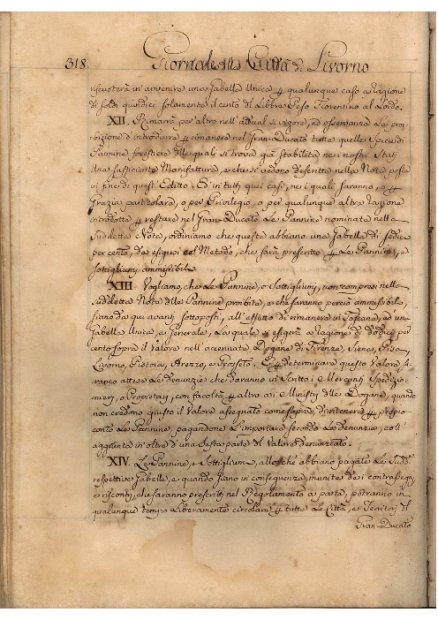 318. Giornale della Città di Livorno
riscuoterà in avvenire una Gabella Unica per qualunque caso a ragione
di soldi quindici solamente il cento di Libbre Peso Fiorentino al Lordo.
XII. Rimarrà per altro nell'attual suo vigore, ad osservanza La proi-
bizione d'introdurre per rimanere nel Gran Ducato tutte quelle Specie di
Pannine forestiere delle quali si trova già stabilita nei nostri Stati
Una sufficiente Manifattura, e che si vedono descritte nella Nota posta
in fine di quest'Editto. Ed in tutti quei casi, nei quali saranno, o per
Grazia particolare, o per Privilegio, o per qualunque altra ragione
introdotte per restare nel Gran Ducato Le Pannine nominate nella
suddetta Nota, ordiniamo che queste abbiano una Gabella di sedici
per cento, da esigersi col Metodo, che sarà prescritto per Le Pannine, e
sottigliumi ammissibili.
XIII. Vogliamo, che Le Pannine, o Sottigliumi, non compresi nella
suddetta Nota delle Pannine proibite, e che saranno perciò ammissibili,
siano da qui avanti sottoposti, all'effetto di rimanere in Toscana, ad una
Gabella Unica, e Generale, La quale si esigerà a ragione di dodici per
cento sopra il Valore nell'accennate Dogane di Firenze, Siena, Pisa,
Livorno, Pistoia, Arezzo, e Grosseto. E per determinare questo Valore si
avranno attese Le denunzie che daranno in Scritto i Mercanti, Spedizio-
nieri, o Proprietarj, con facoltà per altro ai Ministri delle Dogane, quando
non credono giusto il Valore assegnato come sopra, di ritenere per proprio
conto Le Pannine, pagandone L'importare secondo La denunzia, coll'
aggiunta in oltre d'una Sesta parte del Valore denunziato.
XIV. Le Pannine, e Sottigliumi, allorchè abbiano pagate Le Sudd.
respettive Gabelle, e quando siano in conseguenza, munite dei contrassegni,
e riscontri, che saranno prescritti nel Regolamento a parte, potranno in
qualunque tempo Liberamente circolare per tutte Le Città, e Territorj del
Gran Ducato